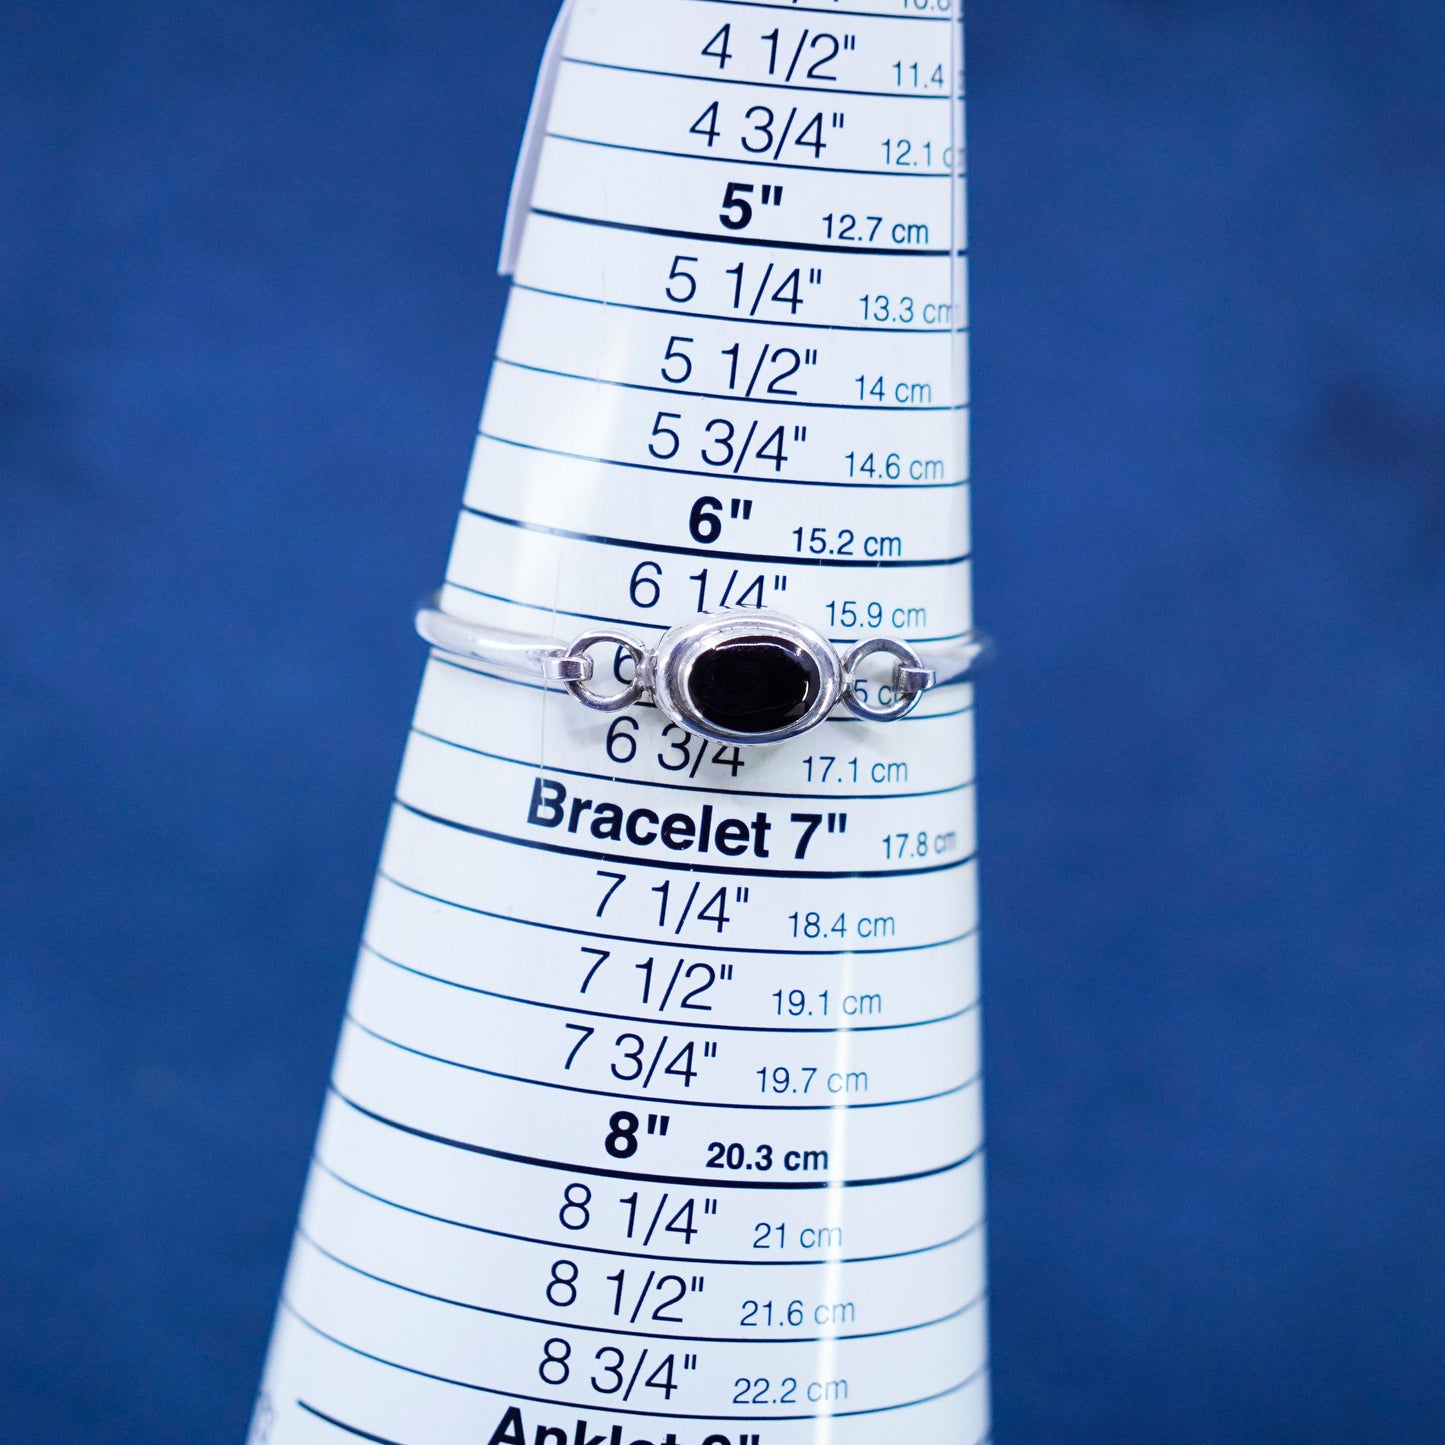 4 1/2" 11.4
4 3/4" 12.1 c
5" 12.7 cm
5 1/4" 13.3 cm
5 1/2" 14 cm
5 3/4" 14.6 cm
6" 15.2 cm
6 1/4" 15.9 cm
6 5 c
6 3/4 17.1 cm
Bracelet 7" 17.8 cm
7 1/4" 18.4 cm
7 1/2" 19.1 cm
7 3/4" 19.7 cm
8" 20.3 cm
8 1/4" 21 cm
8 1/2" 21.6 cm
8 3/4" 22.2 cm
Anklet 9"